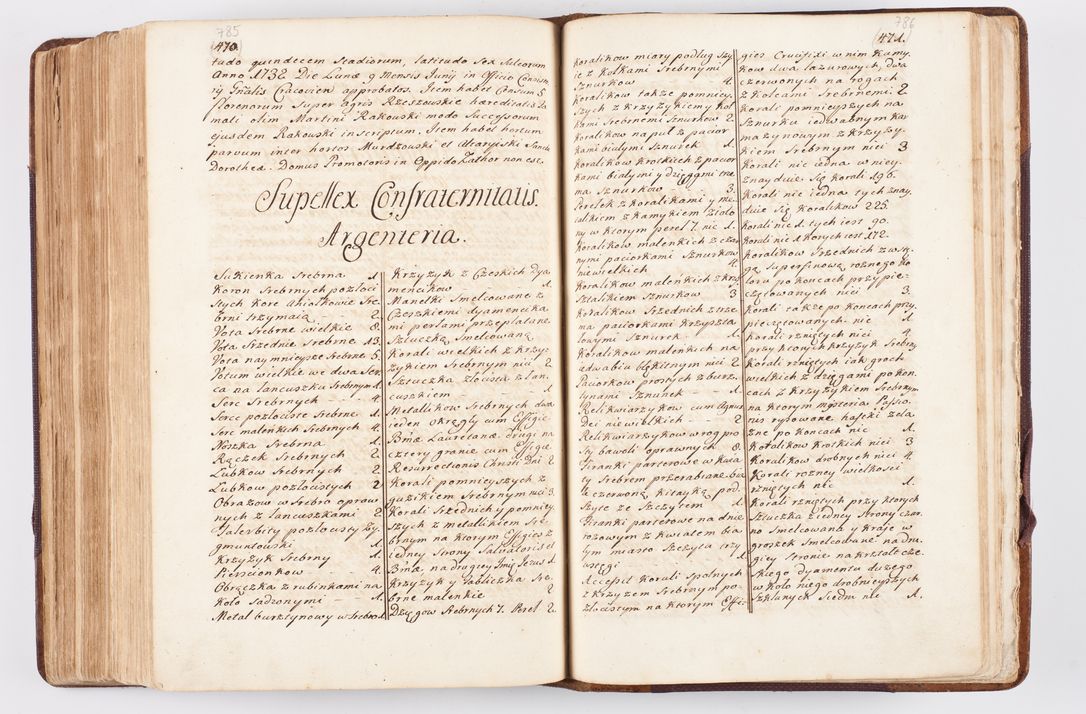 785
470
tudo quindecem Stadiorum, latitudo Sex Miliorum
Anno 1732 Die Lunæ 9 Mensis Junij in Officio Consisto
rij Gńalis Cracovien approbatos. Item habet Censum 5
florenorum Super agris Rzeszowskie hæreditatis Do
mati olim Martini Rakouski modo Successorum
ejusdem Rakouski inscriptum. Item habet hortum
parvum inter hortos Murdzouski et Altaryiski Sanctæ
Dorotheæ. Domus Promotoris in Oppido Zathor non est.
Supellex Confraternitatis.
Argenteria.
Sukienka Srebrna 1
Koron Srebrnych pozłoci
stych Kore Aniołkowie Sre
brni trzymaią 2
Vota Srebrne wielkie 8.
Vota Srzednie Srebrne 13.
Vota naymnieysze Srebrne 5.
Votum wielkie we dwa Ser
ca na łancuszku Srebrnym 1
Serc Srebrnych 4
Serce pozłociste Srebrne 1.
Serc malenkich Srebrnych 4
Noszka Srebrna 1.
Rączek Srebrnych 2
Lubkow Srebrnych 2
Lubkow pozłocistych 2
Obrazow w Srebro opraw
nych z łancuszkami 2
Talerbity pozłocisty Zy
gmuntowski 1.
Krzyżyk Srebrny 1.
Pierscionkow 4.
Obrączka z rubinkami na
Koło Sadzonymi 1.
Metal bursztynowy w Srebro 1.
Krzyżyk z Czeskich dya
mencikow 1.
Manelki Smelcowane z
Czeskiemi dyamencika
mi perłami przeplatane
Sztuczką Smelcowaną
Korali wielkich z krzy
żykiem Srebrnym nici 2
Sztuczka złocista z łan
cuszkiem 1.
Metallikow Srebrnych dwa
ieden okrągły cum Effigie
Bmæ Lauretanæ drugi na
cztery granie cum Effigie
Resurrectionis Christi Dni 2
Korali pomnieyszych z
guzikiem Srebrnym nici 3.
Korali Srzednich y pomniey
szych z metallikiem Sre
brnym na ktorym Effigies z
iedney Strony Salvatoris et
Bmæ na drugiey Imię Jezus 1
Krzyżyk y Tabliczka Sre
brne malenkie 2
Dzięgow Srebrnych 7. Pereł 2.
786
471.
Koralikow miary podług Szy
ie z Kolkami Srebrnymi
Sznurkow 4.
Koralikow także pomniey
szych z Krzyżykiemy Kol
kami Srebrnemi Sznurkow 2
Koralikow na puł z pacior
kami białymi Sznurek 1.
Koralikow Krotkich z pacior
kami białymi y dzięgami trze
ma Sznurkow 3.
Perełek z Koralikami y me
talikiem z kamykiem Złoto
ny w ktorym pereł 7. nic 1.
Koralikow malenkich z czar
nymi paciorkami Sznurkow
niewielkich 4
Koralikow malenkich z kry
sztalikiem Sznurkow 3
Koralikow Srzednich z trze
ma paciorkami Kryszta
lowymi Sznurek 1.
Koralikow malenkich na
iedwabiu błękitnym nici 2
Paciorkow prostych z bursz
tynami Sznurek 1.
Relikwiarzykow cum Agnus
Dei niewielkich 2
Relikwiarzykow w rog pro
sty bawoli oprawnych 8.
Firanki parterowe w kwia
ty Srebrem przerabiane bia
łe czerwoną kitayką pod
szyte ze Szczytem 1.
Firanki parterowe na dnie
rożowym z kwiatem bia
łym miasto Szczyta trzy
wstęgi 1.
Accessit Korali Spolnych
z krzyżem Srebrnym po
złocistym na ktorym Effi
gies Crucifixi w nim Kamy
kow dwa lazurowych, dwa
czerwonych na rogach
z Kolcami Srebrnemi. 2
Korali pomnieyszych na
Sznurku iedwabnym Kar
mazynowym z krzyży
kiem Srebrnym nici 3
Korali nic iedna w niey
znayduie Się korali 196.
Korali nic iedna tych znay
duie Się Koralikow 225.
Korali nic 1. tych iest 90.
Korali nic 1 Korych iest 172.
Koralikow Srzednich z wstę
gą Superfinową rożnego ko
loru po koncach przypie
częstowanych nici 3.
Korali także po koncach przy
pieczętowanych nic 1.
Korali rzniętych nici 4.
przy ktorych krzyżyk Srebrny
Korali rzniętych iak groch
wielkich z dzięgami po kon
cach z krzyżykiem Srebrnym
na ktorym mysteria Passio
nis rysowane haftki żela
zne po koncach nic 1.
Koralikow krotkich nici 3
Koralikow drobnych nici 4.
Korali rozney wielkosci
rzniętych nic 1.
Korali rzniętych przy ktorych
Sztuczka z iedney Strony czar
no Smelcowana y kraje w
groszek Smelcowane na dru
giey Stronie na krztałt cze
skiego dyamentu dużego
w koło niego drobnieyszych
Szklannych Siedm nic 1.